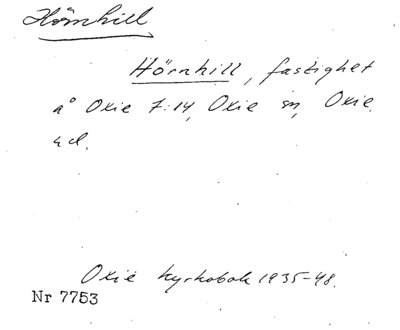 Hörnhill
Hörnhill, fastighet
å Oxie 7:14, Oxie sn, Oxie
hd.
Oxie kyrkobok 1935-48.
Nr 7753